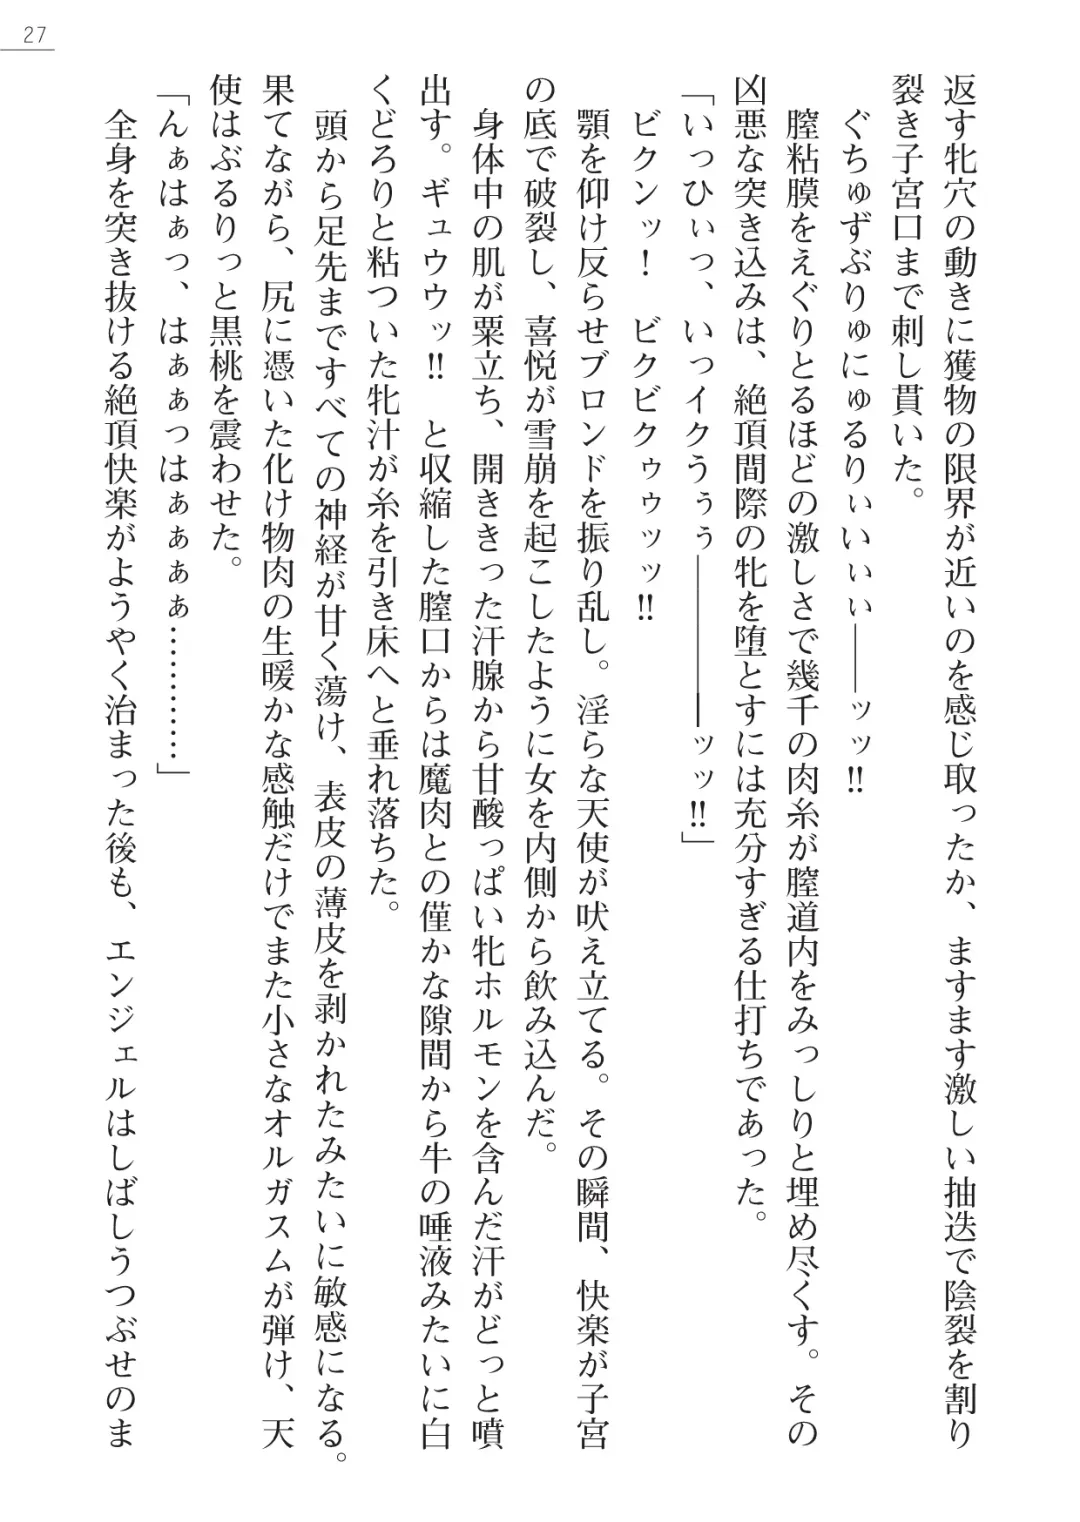 27
返す牝穴の動きに獲物の限界が近いのを感じ取ったか、ますます激しい抽迭で陰裂を割り
裂き子宮口まで刺し貫いた。
ぐちゅずぶりゅにゅるりぃいぃぃ――ッッ‼
膣粘膜をえぐりとるほどの激しさで幾千の肉糸が膣道内をみっしりと埋め尽くす。その
凶悪な突き込みは、絶頂間際の牝を堕とすには充分すぎる仕打ちであった。
「いっひぃっ、いっイクうぅぅ―――――ッッ‼」
ビクンッ！　ビクビクゥゥッッ‼
顎を仰け反らせブロンドを振り乱し。淫らな天使が吠え立てる。その瞬間、快楽が子宮
の底で破裂し、喜悦が雪崩を起こしたように女を内側から飲み込んだ。
身体中の肌が粟立ち、開ききった汗腺から甘酸っぱい牝ホルモンを含んだ汗がどっと噴
出す。ギュウウッ‼　と収縮した膣口からは魔肉との僅かな隙間から牛の唾液みたいに白
くどろりと粘ついた牝汁が糸を引き床へと垂れ落ちた。
頭から足先まですべての神経が甘く蕩け、表皮の薄皮を剥かれたみたいに敏感になる。
果てながら、尻に憑いた化け物肉の生暖かな感触だけでまた小さなオルガスムが弾け、天
使はぶるりっと黒桃を震わせた。
「んぁはぁっ、はぁぁっはぁぁぁぁ…………」
全身を突き抜ける絶頂快楽がようやく治まった後も、エンジェルはしばしうつぶせのま